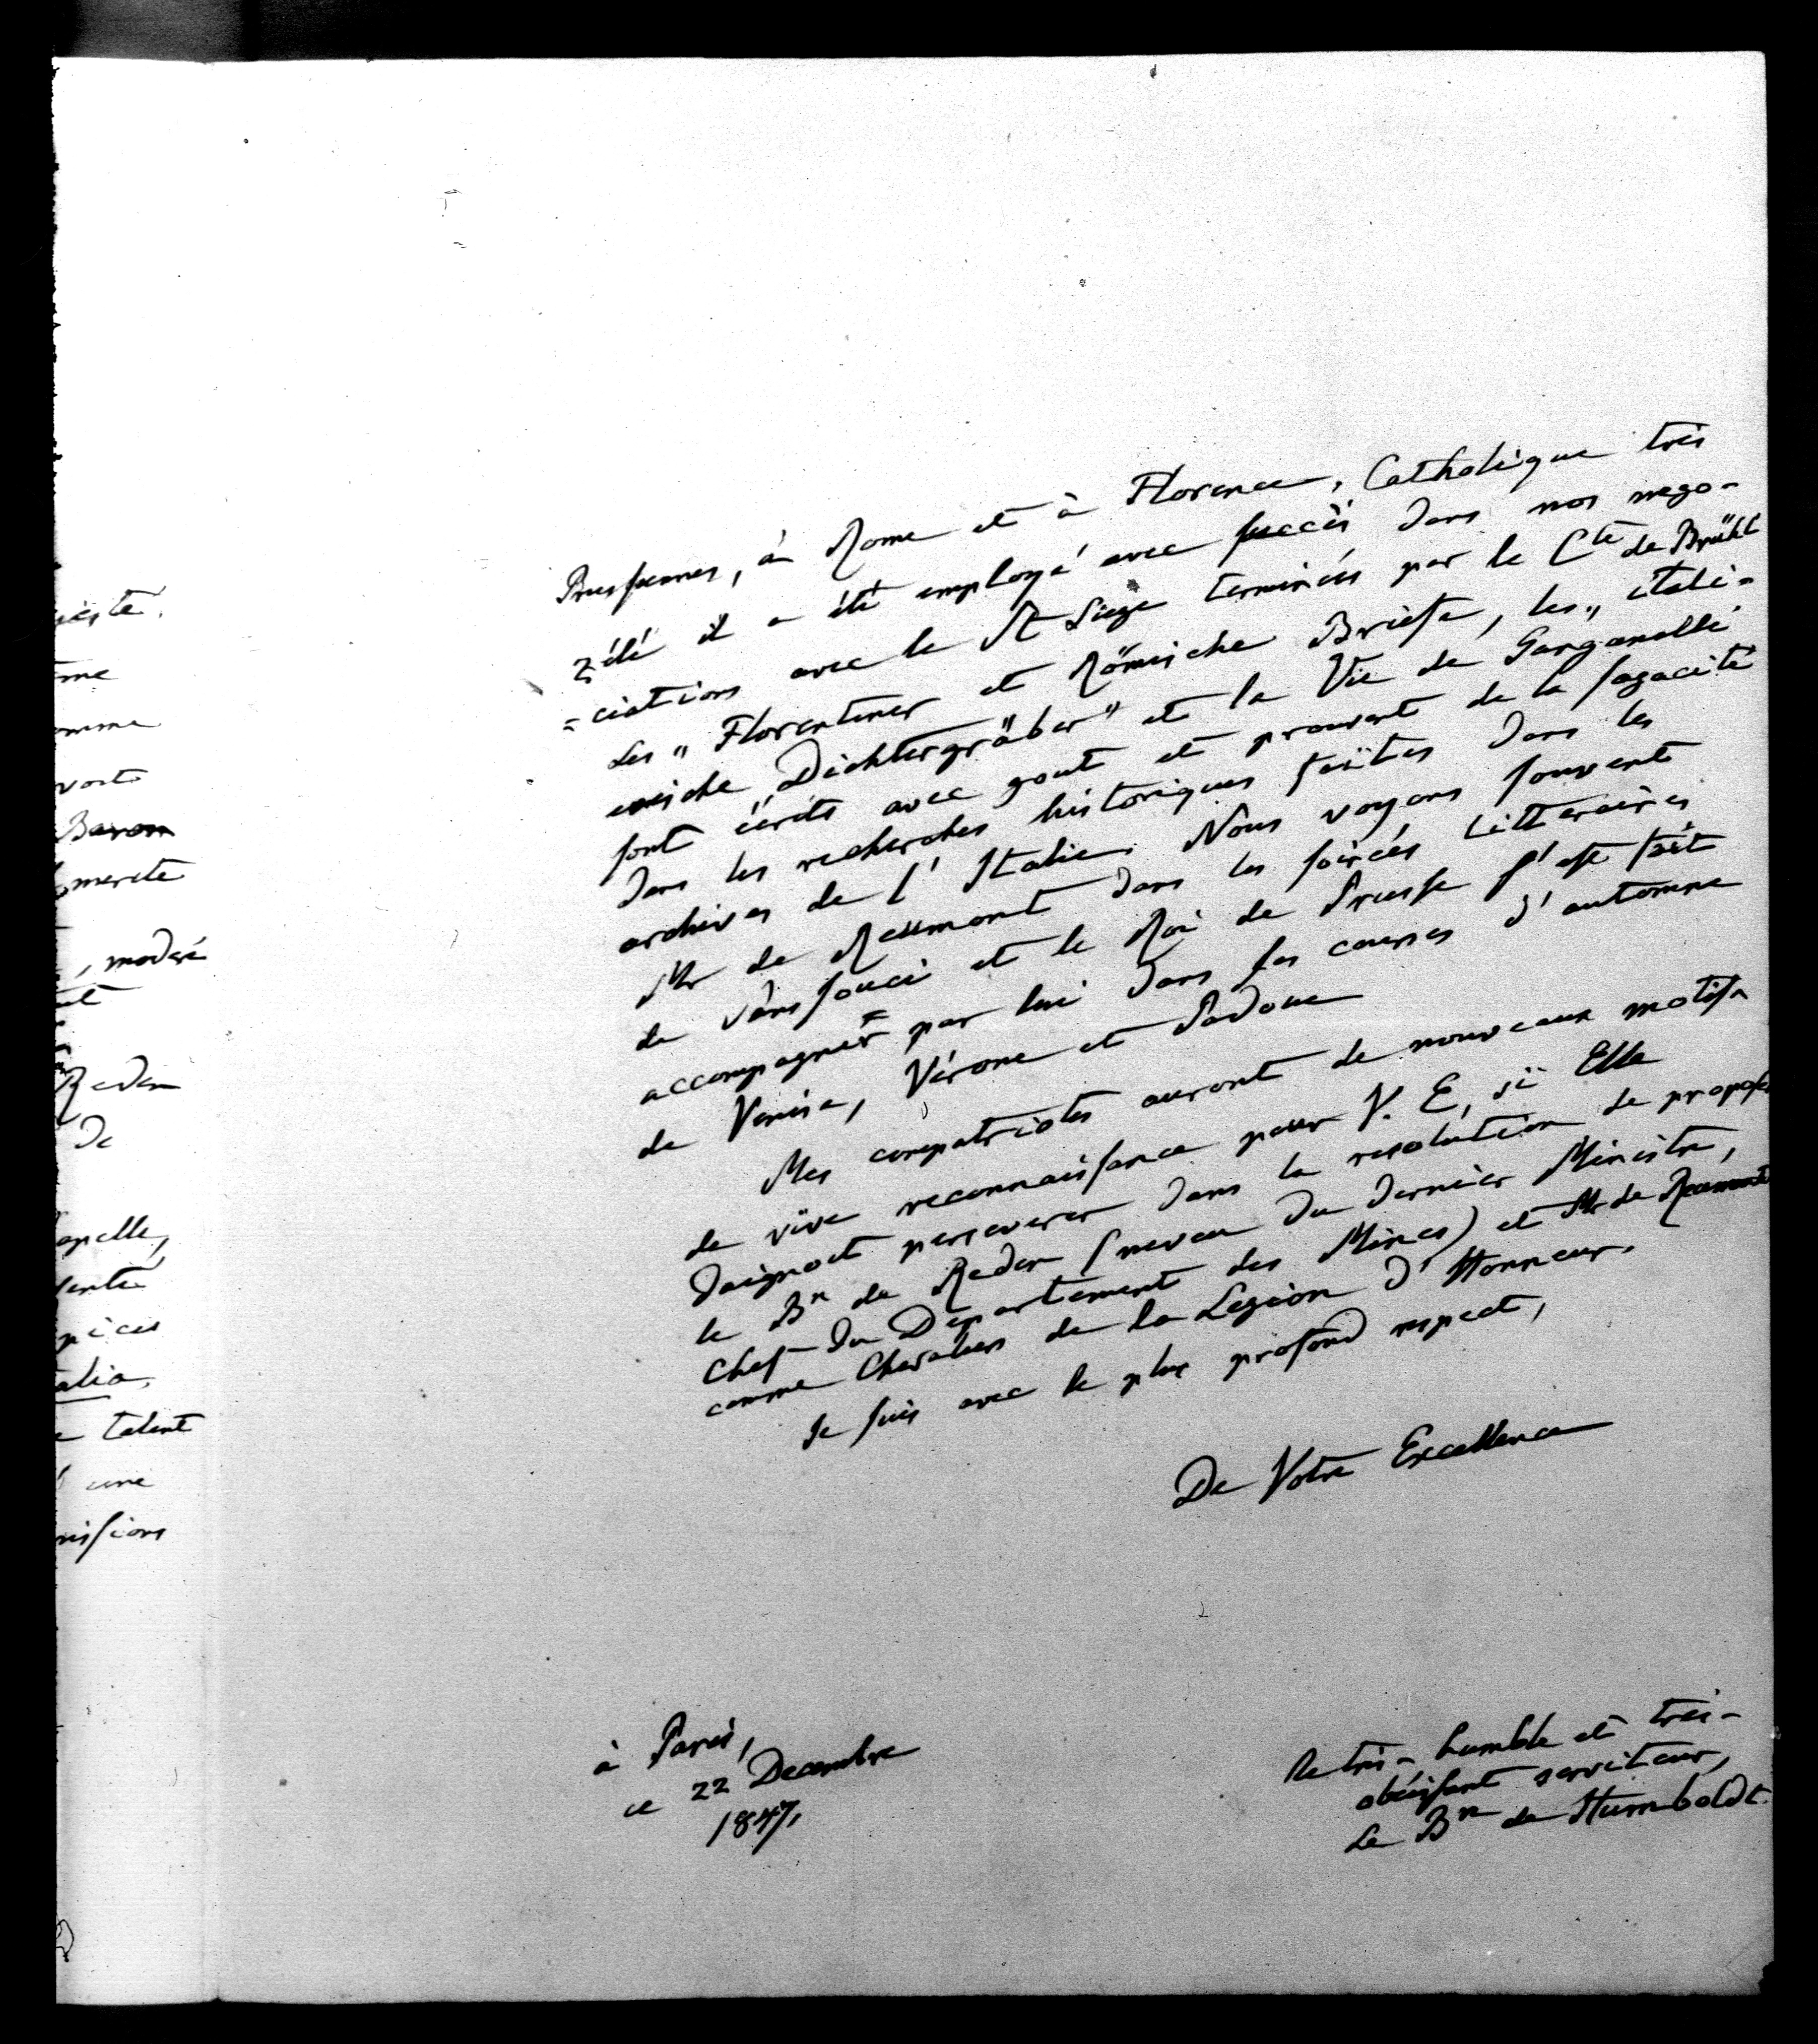 Prussiennes, à Rome et à Florence, Catholique très
zélé il a été employé avec succès dans nos nego-
=ciations avec le St Siege terminées par le Cte de Brühl
Les „Florentiner et Römische Briefe, les „itali-
enische „Dichtergräber" et la Vie de Ganganelli
sont écrits avec gout et prouvent de la sagacité
dans les recherches historiques faites dans les
archives de l'Italie. Nous voyons souvent
Mr de Reumont dans les soirées litteraires
de Sans souci et le Roi de Prusse s'est fait
accompagner par lui dans ses courses d'automne
de Venise, Vérone et Padoue
Mes compatriotes auront de nouveaux motifs
de vive reconnaissance pour V. E, si Elle
daignoit perseverer dans la resolution de proposer
le Bn de Reden (neveu du dernier Ministre,
Chef du Departement des Mines) et Mr de Reumont
comme Chevaliers de la Legion d'Honneur.
Je suis avec le plus profond respect,
De Votre Excellence
à Paris,
ce 22 Decembre
1847,
le très-humble et très-
obéissant serviteur,
Le Bn de Humboldt.
Baron
merite
, moderé
Reden
De
talent
une